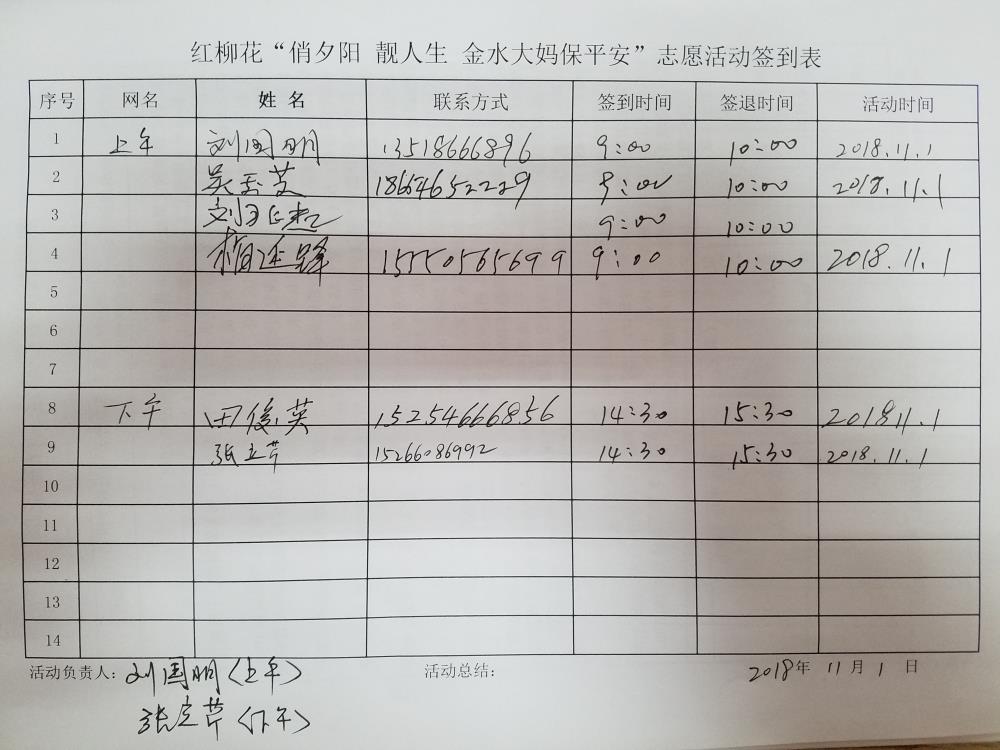 红柳花“俏夕阳 靓人生 金水大妈保平安”志愿活动签到表
序号 网名 姓 名 联系方式 签到时间 签退时间 活动时间
1 上午 刘国明 13518666896 9:00 10:00 2018.11.1
2 吴玉芝 18664652229 9:00 10:00 2018.11.1
3 9:00 10:00
4 相廷锋 15550565699 9:00 10:00 2018.11.1
5
6
7
8 下午 田俊英 15254666856 14:30 15:30 201811.1
9 张立芹 15266086992 14:30 15:30 2018.11.1
10
11
12
13
14
活动负责人: 刘国明(上午) 活动总结: 2018年 11月 1 日
张立芹(下午)